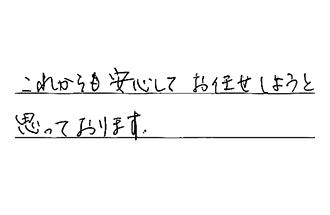 これからも安心してお任せしようと
思っております.